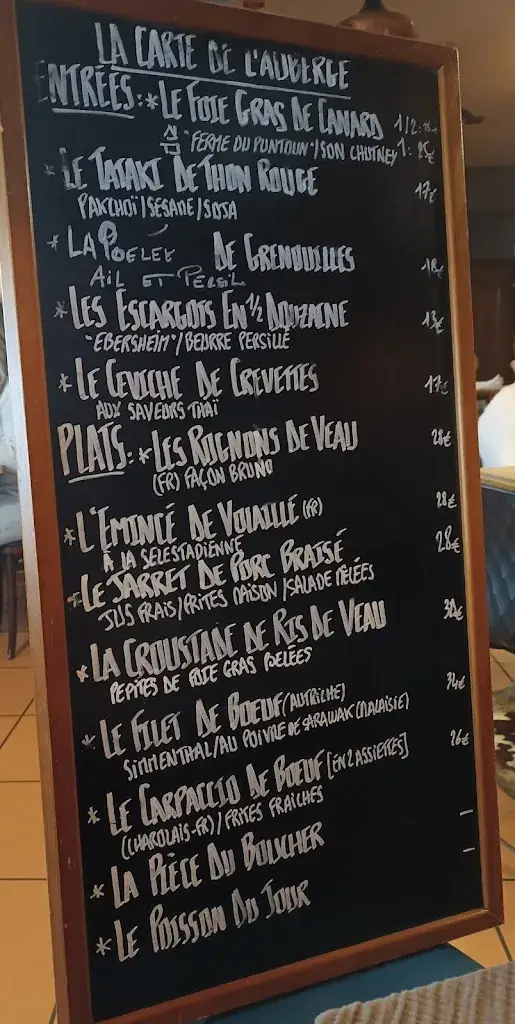 LA CARTE DE L'AUBERGE
ENTRÉES: * LE FOIE GRAS DE CANARD 1/2:
"FERME DU PUNTOUN"/SON CHUTNEY 1: 25€
* LE TATAKI DE THON ROUGE 17€
PAKCHOÏ/SESAME/SOJA
* LA POELEE DE GRENOUILLES 18€
AIL ET PERSIL
* LES ESCARGOTS EN 1/2 DOUZAINE 13€
"EBERSHEIM"/BEURRE PERSILLÉ
* LE CEVICHE DE CREVETTES 17€
AUX SAVEURS THAÏ
PLATS: * LES ROGNONS DE VEAU 28€
(FR) FAÇON BRUNO
* L'ÉMINCÉ DE VOLAILLE (FR) 28€
À LA SELESTADIENNE
* LE JARRET DE PORC BRAISÉ 28€
JUS FRAIS/FRITES MAISON/SALADE MÊLÉES
* LA CROUSTADE DE RIS DE VEAU 38€
PEPITES DE FOIE GRAS POELÉES
* LE FILET DE BOEUF (AUTRICHE) 34€
SIMMENTHAL/AU POIVRE DE SARAWAK (MALAISIE)
* LE CARPACCIO DE BOEUF [EN 2 ASSIETTES] 26€
(CHAROLAIS-FR)/FRITES FRAICHES
* LA PIÈCE DU BOUCHER –
* LE POISSON DU JOUR –